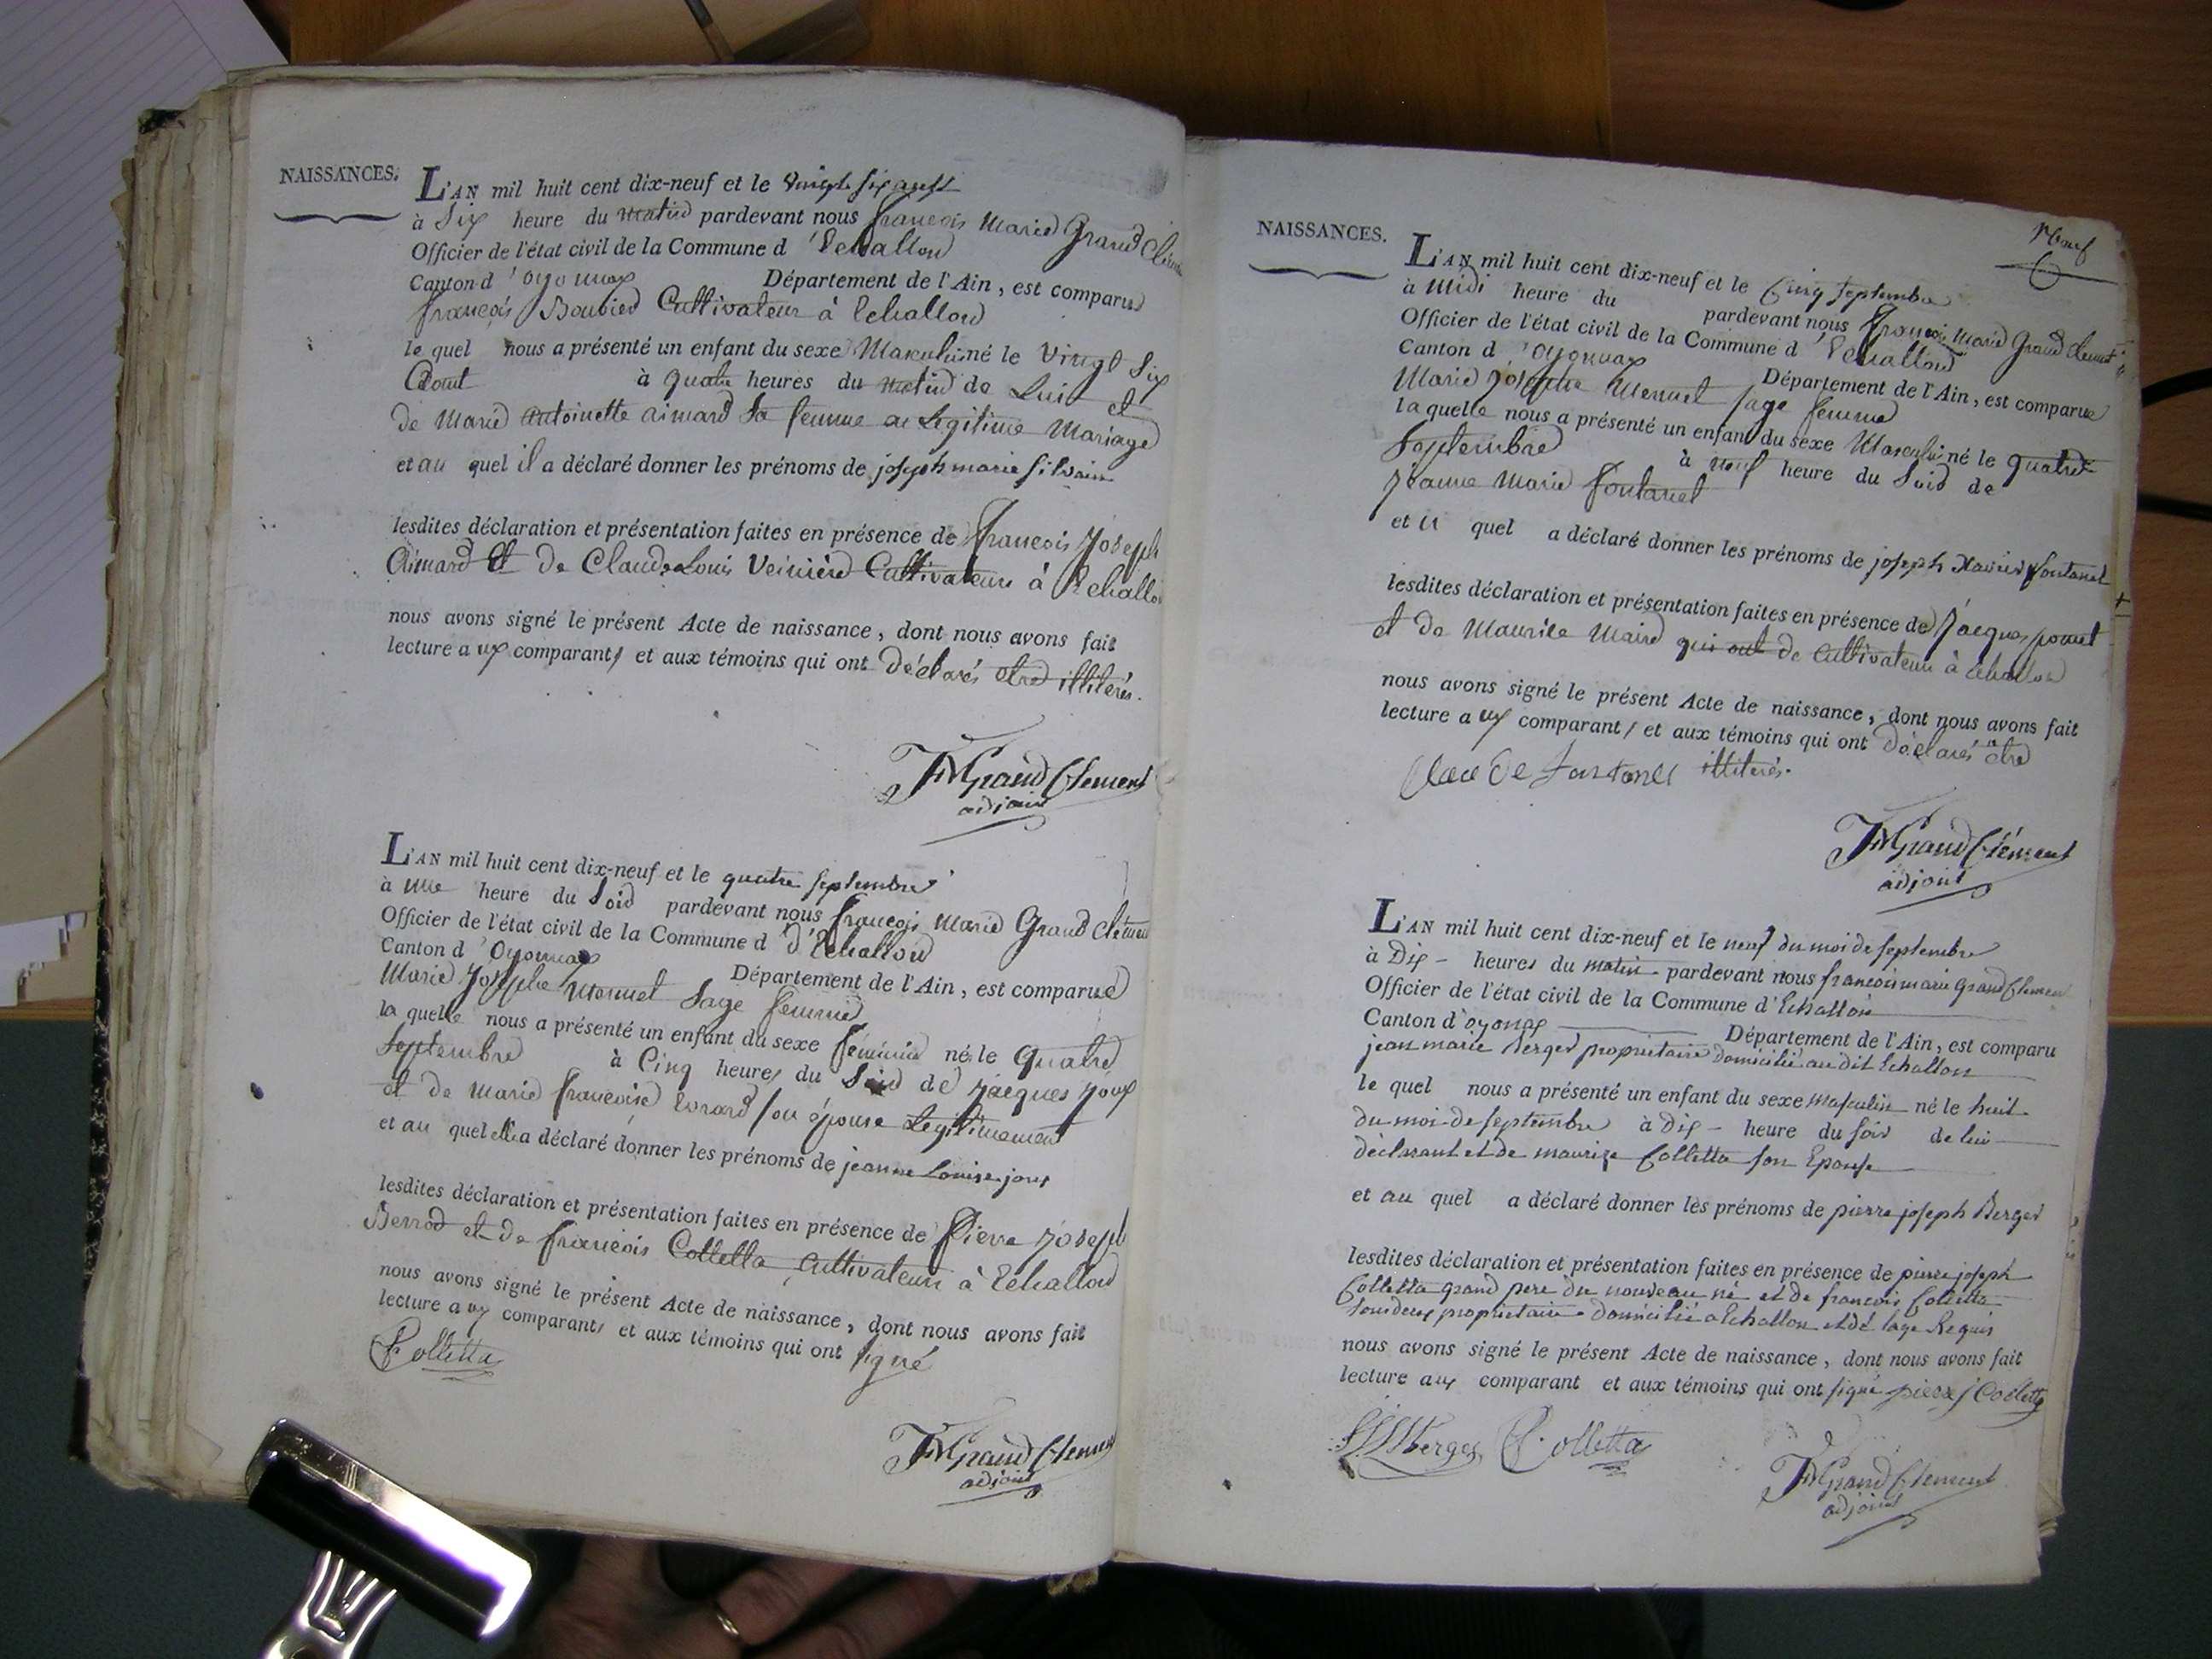 NAISSANCES.
L'AN mil huit cent dix-neuf et le vingt six aoust
à Six heure du matin pardevant nous francois Marie Grand Clément
Officier de l'état civil de la Commune d'Echallon
Canton d'oyonnax Département de l'Ain, est comparu
francois Boubier Cultivateur à Echallon
le quel nous a présenté un enfant du sexe Masculin né le vingt Six
Aout à quatre heures du matin de Lui et
de Marie antoinette aimard Sa femme en Legitime Mariage
et au quel il a déclaré donner les prénoms de joseph marie silvain
lesdites déclaration et présentation faites en présence de francois Joseph
Aimard Et de Claude Louis Veiniere Cultivateurs à Echallon
nous avons signé le présent Acte de naissance, dont nous avons fait
lecture aux comparants et aux témoins qui ont déclarés etre illiterés.
FM Grand Clement
adjoint
L'AN mil huit cent dix-neuf et le quatre septembre
à une heure du Soir pardevant nous francois Marie Grand Clément
Officier de l'état civil de la Commune d d'Echallon
Canton d'Oyonnax Département de l'Ain, est comparue
Marie Josephe Monnet Sage femme
la quelle nous a présenté un enfant du sexe féminin né le Quatre
Septembre à Cinq heures du Soir de Jacques Joux
et de Marie francoise Evrard son épouse Legitimement
et au quel elle a déclaré donner les prénoms de jeanne Louise joux
lesdites déclaration et présentation faites en présence de Pierre Joseph
Berrod et de francois Colletta Cultivateurs à Echallon
nous avons signé le présent Acte de naissance, dont nous avons fait
lecture aux comparants et aux témoins qui ont signé
F. Colletta
FM Grand Clement
adjoint
NAISSANCES.
neuf
L'AN mil huit cent dix-neuf et le Cinq septembre
à Midi heure du pardevant nous francois Marie Grand Clement
Officier de l'état civil de la Commune d'Echallon
Canton d'oyonnax Département de l'Ain, est comparue
Marie Josephe Monnet sage femme
la quelle nous a présenté un enfant du sexe Masculin né le quatre
Septembre à neuf heure du Soir de
Jeanne Marie fontanel
et u quel a déclaré donner les prénoms de joseph Xavier fontanel
lesdites déclaration et présentation faites en présence de Jacques
et de Maurice Maire qui ont de cultivateurs à Echallon
nous avons signé le présent Acte de naissance, dont nous avons fait
lecture aux comparants et aux témoins qui ont déclarés être
illiterés.
FM Grand Clément
adjoint
L'AN mil huit cent dix-neuf et le neuf du moi de septembre
à Dix heures du matin pardevant nous francois marie Grand Clemen
Officier de l'état civil de la Commune d'Echallon
Canton d'oyonax Département de l'Ain, est comparu
jean marie Berger proprietaire domicilié au dit Echallon
le quel nous a présenté un enfant du sexe masculin né le huit
du moi de septembre à Dix heure du soir de lui
déclarant et de maurize Colletta son Epouse
et au quel a déclaré donner les prénoms de pierre joseph Berger
lesdites déclaration et présentation faites en présence de pierre joseph
Colletta grand pere du nouveau né et de francois Colletta
tous deux proprietaire domicilié a Echallon et de l'age Requis
nous avons signé le présent Acte de naissance, dont nous avons fait
lecture aux comparant et aux témoins qui ont signé pierre j Colletta
Berger F. Colletta
FM Grand Clement
adjoint